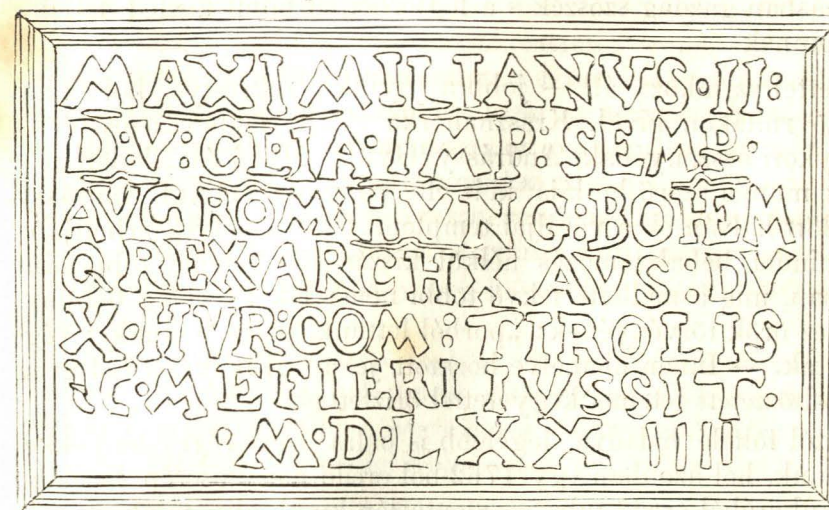 MAXIMILIANVS·II:
D:V:CL·IA·IMP:SEMP·
AVG ROM:HVNG:BOHEM
QREX·ARCHX AVS:DV
X·HVR:COM:TIROLIS
ꝛC·MEFIERI IVSSIT·
·M·D·LXX IIII